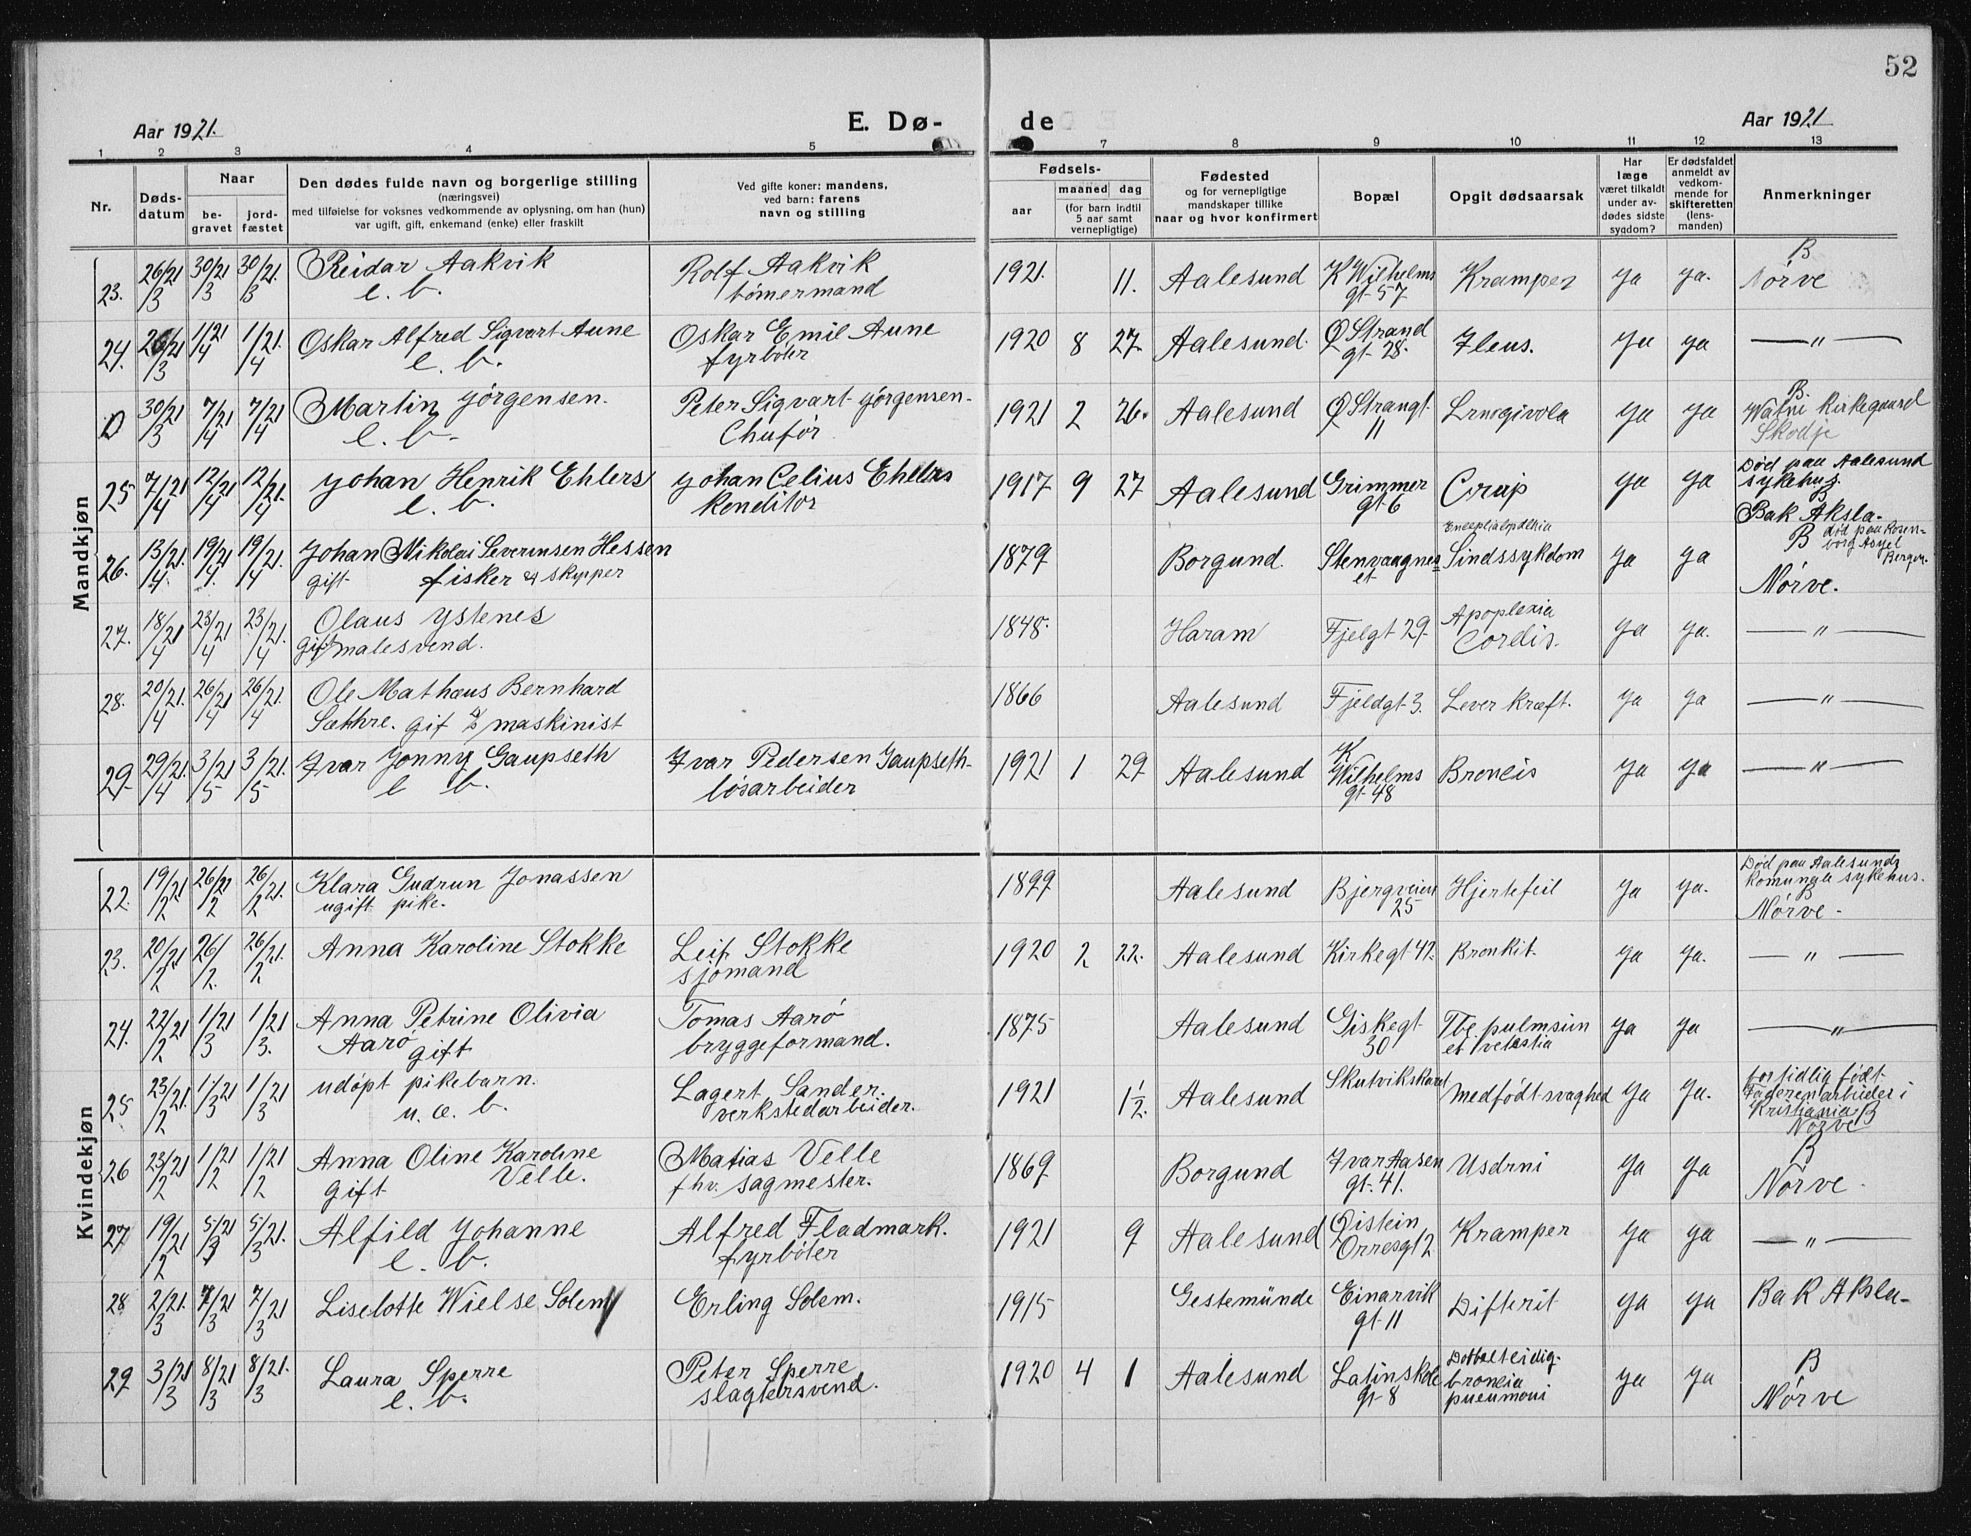 52
Aar 1921.
E. Dø-
de
Aar 1921
1 2 3 4 5 7 8 9 10 11 12 13
Nr.
Døds-
datum
Naar
be-
gravet
jord-
fæstet
Den dødes fulde navn og borgerlige stilling
(næringsvei)
med tilføielse for voksnes vedkommende av oplysning, om han (hun)
var ugift, gift, enkemand (enke) eller fraskilt
Ved gifte koner: mandens,
ved barn: farens
navn og stilling
Fødsels-
aar
maaned dag
(for barn indtil
5 aar samt
vernepligtige)
Fødested
og for vernepligtige
mandskaper tillike
naar og hvor konfirmert
Bopæl
Opgit dødsaarsak
Har
læge
været tilkaldt
under av-
dødes sidste
sygdom?
Er dødsfaldet
anmeldt av
vedkom-
mende for
skifteretten
(lens-
manden)
Anmerkninger
Mandkjøn
23. 26/21/3 30/21/3 30/21/3 Reidar Aakvik Rolf Aakvik 1921. 11. Aalesund K Wilhelms Kramper ja ja. B
e. b. tømermand gt 57 Nørve
24. 26/21/3 1/21/4 1/21/4 Oskar Alfred Sigvart Aune Oskar Emil Aune 1920 8 27. Aalesund. Ø Strand Ileus. ja ja — " —
e. b. fyrbøter gt 28.
D 30/21/3 7/21/4 7/21/4 Martin Jørgensen. Peter Sigvart Jørgensen- 1921 2 26. Aalesund Ø Strangt ja ja B.
e. b. Chufør 11 Vatne Kirkegaard
Skodje
25 7/21/4 12/21/4 12/21/4 Johan Henrik Ehlers Johan Celius Ehlers 1917 9 27 Aalesund Grimmer Crup ja ja Død paa Aalesund
e. b. Konditor gt 6 sykehus.
B
Bak Aksla-
26. 13/21/4 19/21/4 19/21/4 Johan Nikolai Severinsen Hessen 1879 Borgund. Stenvaagnes Sindssykdom ja ja B død paa Rosen-
gift fisker & skipper borg Asyl
Bergen.
Nørve.
27. 18/21/4 23/21/4 23/21/4 Olaus Ystenes 1848. Haram Fjelgt 29. Apoplexia ja ja. — " —
gift malesvend. Cordis.
28. 20/21/4 26/21/4 26/21/4 Ole Mathæus Bernhard 1866 Aalesund Fjeldgt 3. Lever kræft. ja ja — " —
Sæthre. gif d/s maskinist
29 29/21/4 3/21/5 3/21/5 Ivar Jonny Gaupseth Ivar Pedersen Gaupseth- 1921 1 29 Aalesund K Broncis ja ja — " —
e b. løsarbeider Wilhelms
gt 48
Kvindekjøn
22. 19/21/2 26/21/2 26/21/2 Klara Gudrun Jonassen 1899 Aalesund Bjergveien Hjertefeil ja ja. Død paa Aalesunds
ugift pike. 25 komunale sykehus.
B
Nørve.
23. 20/21/2 26/2. 26/21/2 Anna Karoline Stokke Leif Stokke 1920 2 22. Aalesund Kirkegt 42. Bronkit. ja ja. — " —
sjømand
24. 22/21/2 1/21/3 1/21/3. Anna Petrine Olivia Tomas Aarø 1875 Aalesund Giskegt Tbc pulmsum ja ja — " —
Aarø gift bryggeformand. 30
25 23/21/2 1/21/3 1/21/3 udøpt pikebarn. Lagert Sander. 1921 1/2. Aalesund Skutvikskaret Medfødt svaghed ja ja. for tidlig født
u. æ. b. verkstedarbeider. Faderen arbeider i
Kristiania B
Nørve
26 23/21/2 1/21/2 1/21/2 Anna Oline Karoline Matias Velle 1869 Borgund Ivar Aasen ja ja B
gift Velle. fhv. sagmester. gt. 41. Nørve.
27 19/21/2 5/21/3 5/21/3 Alfild Johanne Alfred Fladmark. 1921 9 Aalesund Øistein Kramper ja ja — " —
e. b. fyrbøter Orresgt 2
28 2/21/3 7/21/3 7/21/3 Liselotte Wielse Solem Erling Solem. 1915 Gestemünde Einarvik Difterit ja ja Bak Aksla-
gt 11
29 3/21/3 8/21/3 8/21/3 Laura Sperre Peter Sperre 1920 4 1 Aalesund Latinskole Dobbeltsidig ja ja B
e. b. slagtersvend. gt 8 broncia Nørve
pneumoni